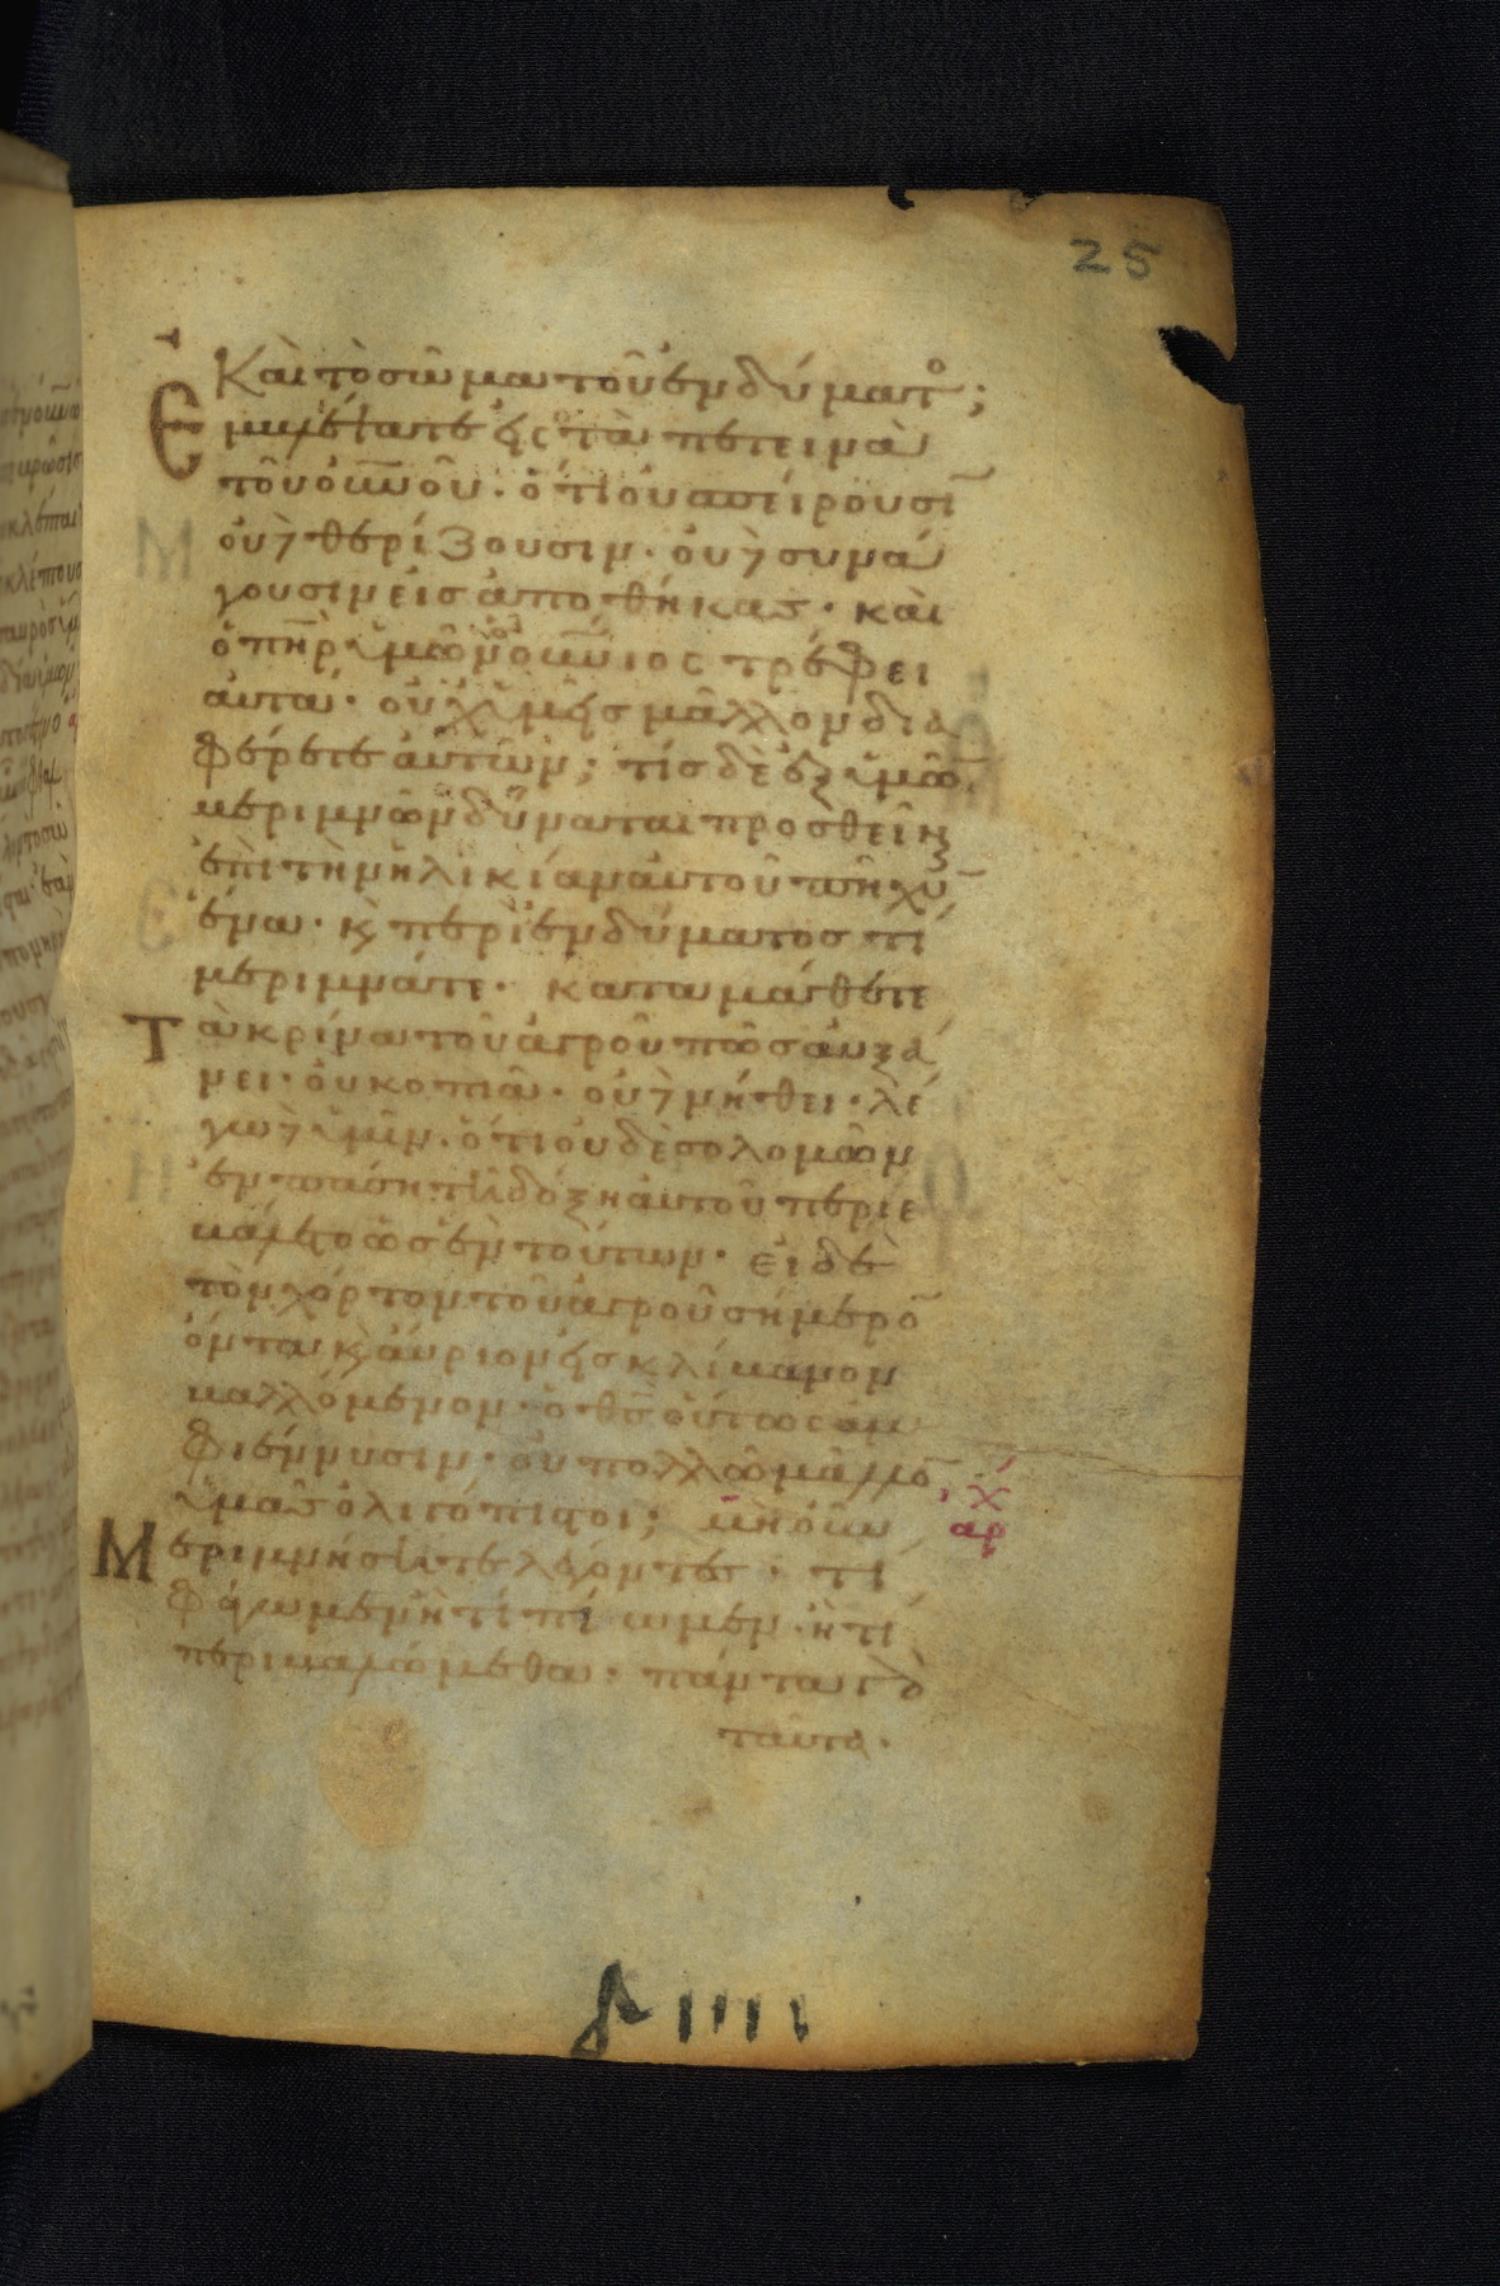 25
Καὶ τὸ σῶμα τοῦ ἐνδύματο;
Ἐμβλέψατε εἰς τὰ πετεινὰ
τοῦ οὐνοῦ· ὅτι οὐ σπείρουσῖ
οὐδὲ θερίζουσιν· οὐδὲ συνά
γουσιν εἰς ἀποθήκας· καὶ
ὁ πηρ ὑμῶν ὁ οὐνιος τρέφει
αὐτά· οὐχ ὑμεῖς μᾶλλον δια
φέρετε αὐτῶν; τίς δὲ ἐξ ὑμῶ
μεριμνῶν δύναται προσθεῖν
ἐπὶ τὴν ἡλικίαν αὐτοῦ πῆχῦ
ἕνα· κ περὶ ἐνδύματος τί
μεριμνᾶτε· καταμάθετε
Τὰ κρίνα τοῦ ἀγροῦ πῶς αὐξά
νει· οὐ κοπιᾶ· οὐδὲ νήθει· λέ
γω δὲ ὑμῖν· ὅτι οὐδὲ σολομῶν
ἐν πάση τῆ δόξη αὐτοῦ περιε
βάλετο ὡς ἓν τούτων· εἰ δὲ
τὸν χόρτον τοῦ ἀγροῦ σήμερο
ὄντα κ αὔριον εἰς κλίβανον
βαλλόμενον· ὁ θς οὕτως ἀμ
φιέννυσιν· οὐ πολλῶ μᾶλλο
ὑμᾶς ὀλιγόπιστοι; μὴ οὖν
αρχ
Μεριμνήσητε λέγοντες· τί
φάγωμεν ἢ τί πίωμεν· ἢ τί
περιβαλώμεθα· πάντα γὰρ
ταῦτα·